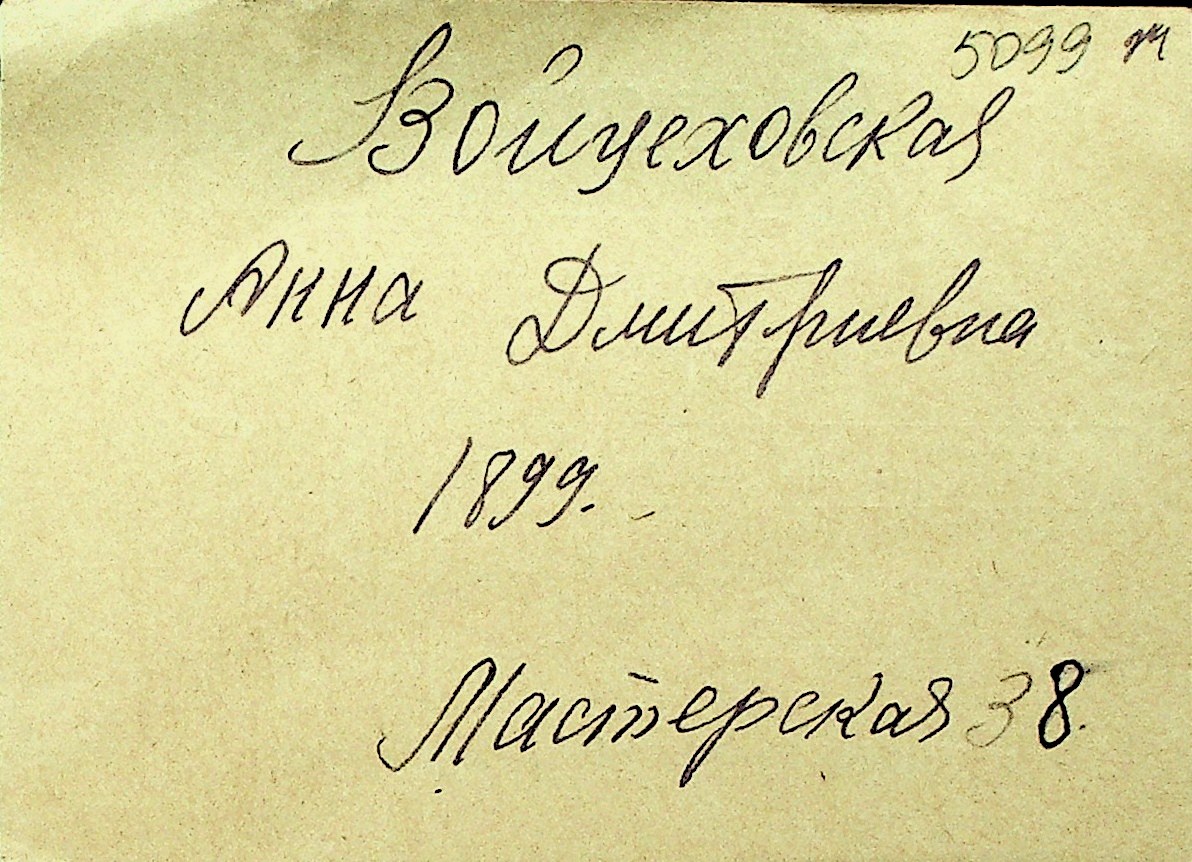 5099 м
Войцеховская
Анна Дмитриевна
1899.
Мастерская 38.